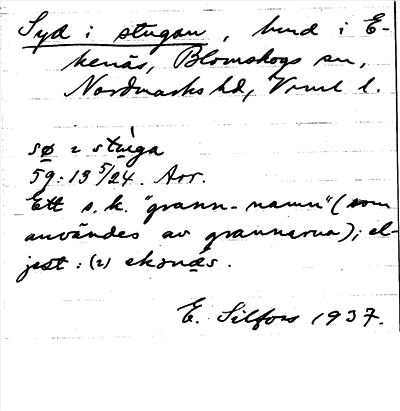 Syd i stugan, bend i E-
kenäs, Blomskogs sn,
Nordmarks hd, Vrml l.
sø i stùga
59:13 5/24. Arr.
Ett s.k. "grann-namn" (som
användes av grannarna); el-
jest: (2) ekonäs.
E. Silfors 1937.